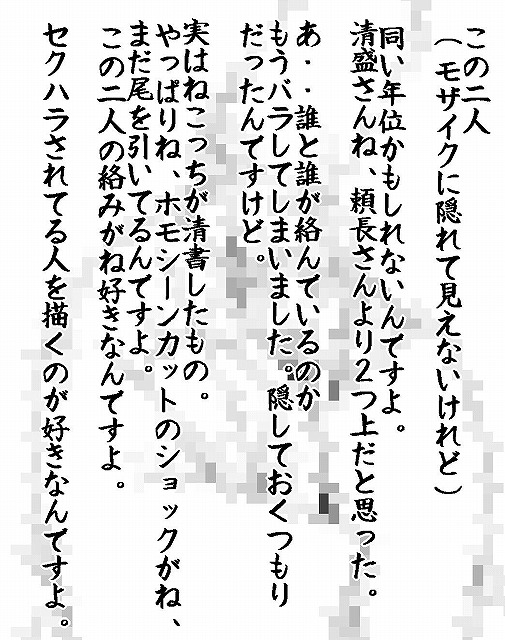 この二人
(モザイクに隠れて見えないけれど)
同い年位かもしれないんですよ。
清盛さんね、頼長さんより2つ上だと思った。
あ・・誰と誰が絡んでいるのか
もうバラしてしまいました。隠しておくつもり
だったんですけど。
実はねこっちが清書したもの。
やっぱりね、ホモシーンカットのショックがね、
まだ尾を引いてるんですよ。
この二人の絡みがね好きなんですよ。
セクハラされてる人を描くのが好きなんですよ。